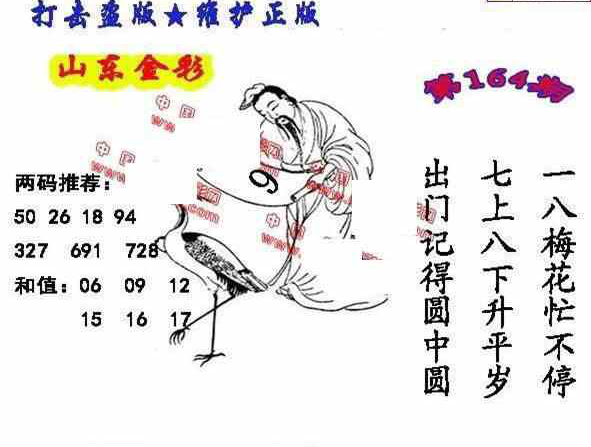 打击盗版★维护正版
山东金彩
第164期
两码推荐：
50 26 18 94
327 691 728
和值：06 09 12
15 16 17
9
一八梅花忙不停
七上八下升平岁
出门记得圆中圆
中国
www.
中国
www.
中国
www.
.com